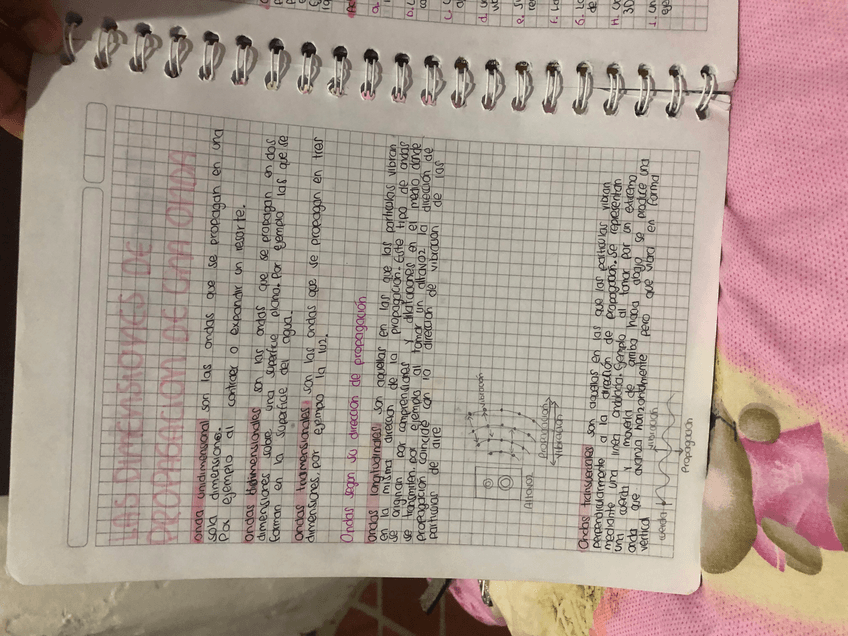 LAS DIMENSIONES DE
PROPAGACION DE UNA ONDA
onda unidimensional son las ondas que se propagan en una
sola dimensione.
Por ejemplo al contraer o expandir un resorte.
Ondas bidimensionales son las ondas que se propagan en dos
dimensiones sobre una superficie plana. Por ejemplo las que se
forman en la superficie del agua.
Ondas tridimensionales son las ondas que se propagan en tres
dimensiones. por ejemplo la luz.
Ondas segun su direccion de propagacion
Ondas longitudinales son aquellas en las que las particulas vibran
en la misma direccion de la propagacion. Este tipo de ondas
se originan por comprensiones y dilataciones en el medio donde
se transmiten. por ejemplo al tomar un altavoz la direccion de
propagacion coincide con la direccion de vibracion de las
particulas de aire
vibracion
Altavoz
Propagacion
vibracion
Ondas transversales son aquellas en las que las particulas vibran
perpendicularmente a la direccion de propagacion. Se representan
mediante una linea ondulada. Ejemplo al tomar por un extremo
una cuerda y moverla de arriba hacia abajo se produce una
onda que avanza horizontalmente pero que vibra en forma
vertical
vibracion
cuerda
Propagacion